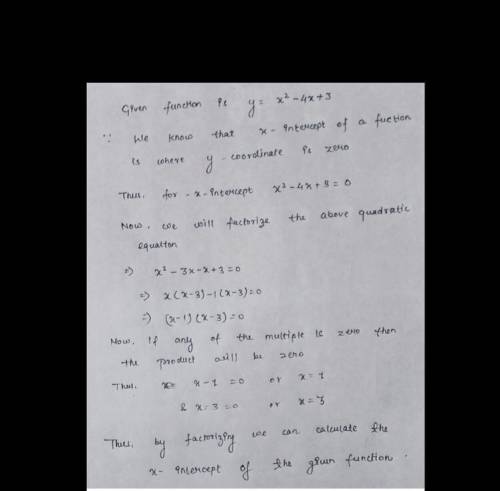 Given function is y = x² - 4x + 3
∵ We know that x - intercept of a fuction
is where y - coordinate is zero
Thus, for - x - intercept x² - 4x + 3 = 0
Now, we will factorize the above quadratic
equation
=) x² - 3x - x + 3 = 0
=) x (x - 3) - 1 (x - 3) = 0
=) (x - 1) (x - 3) = 0
Now, If any of the multiple is zero then
the product will be zero
Thus, x= x - 1 = 0 or x = 1
& x - 3 = 0 or x = 3
Thus, by factorizing we can calculate the
x - intercept of the given function .